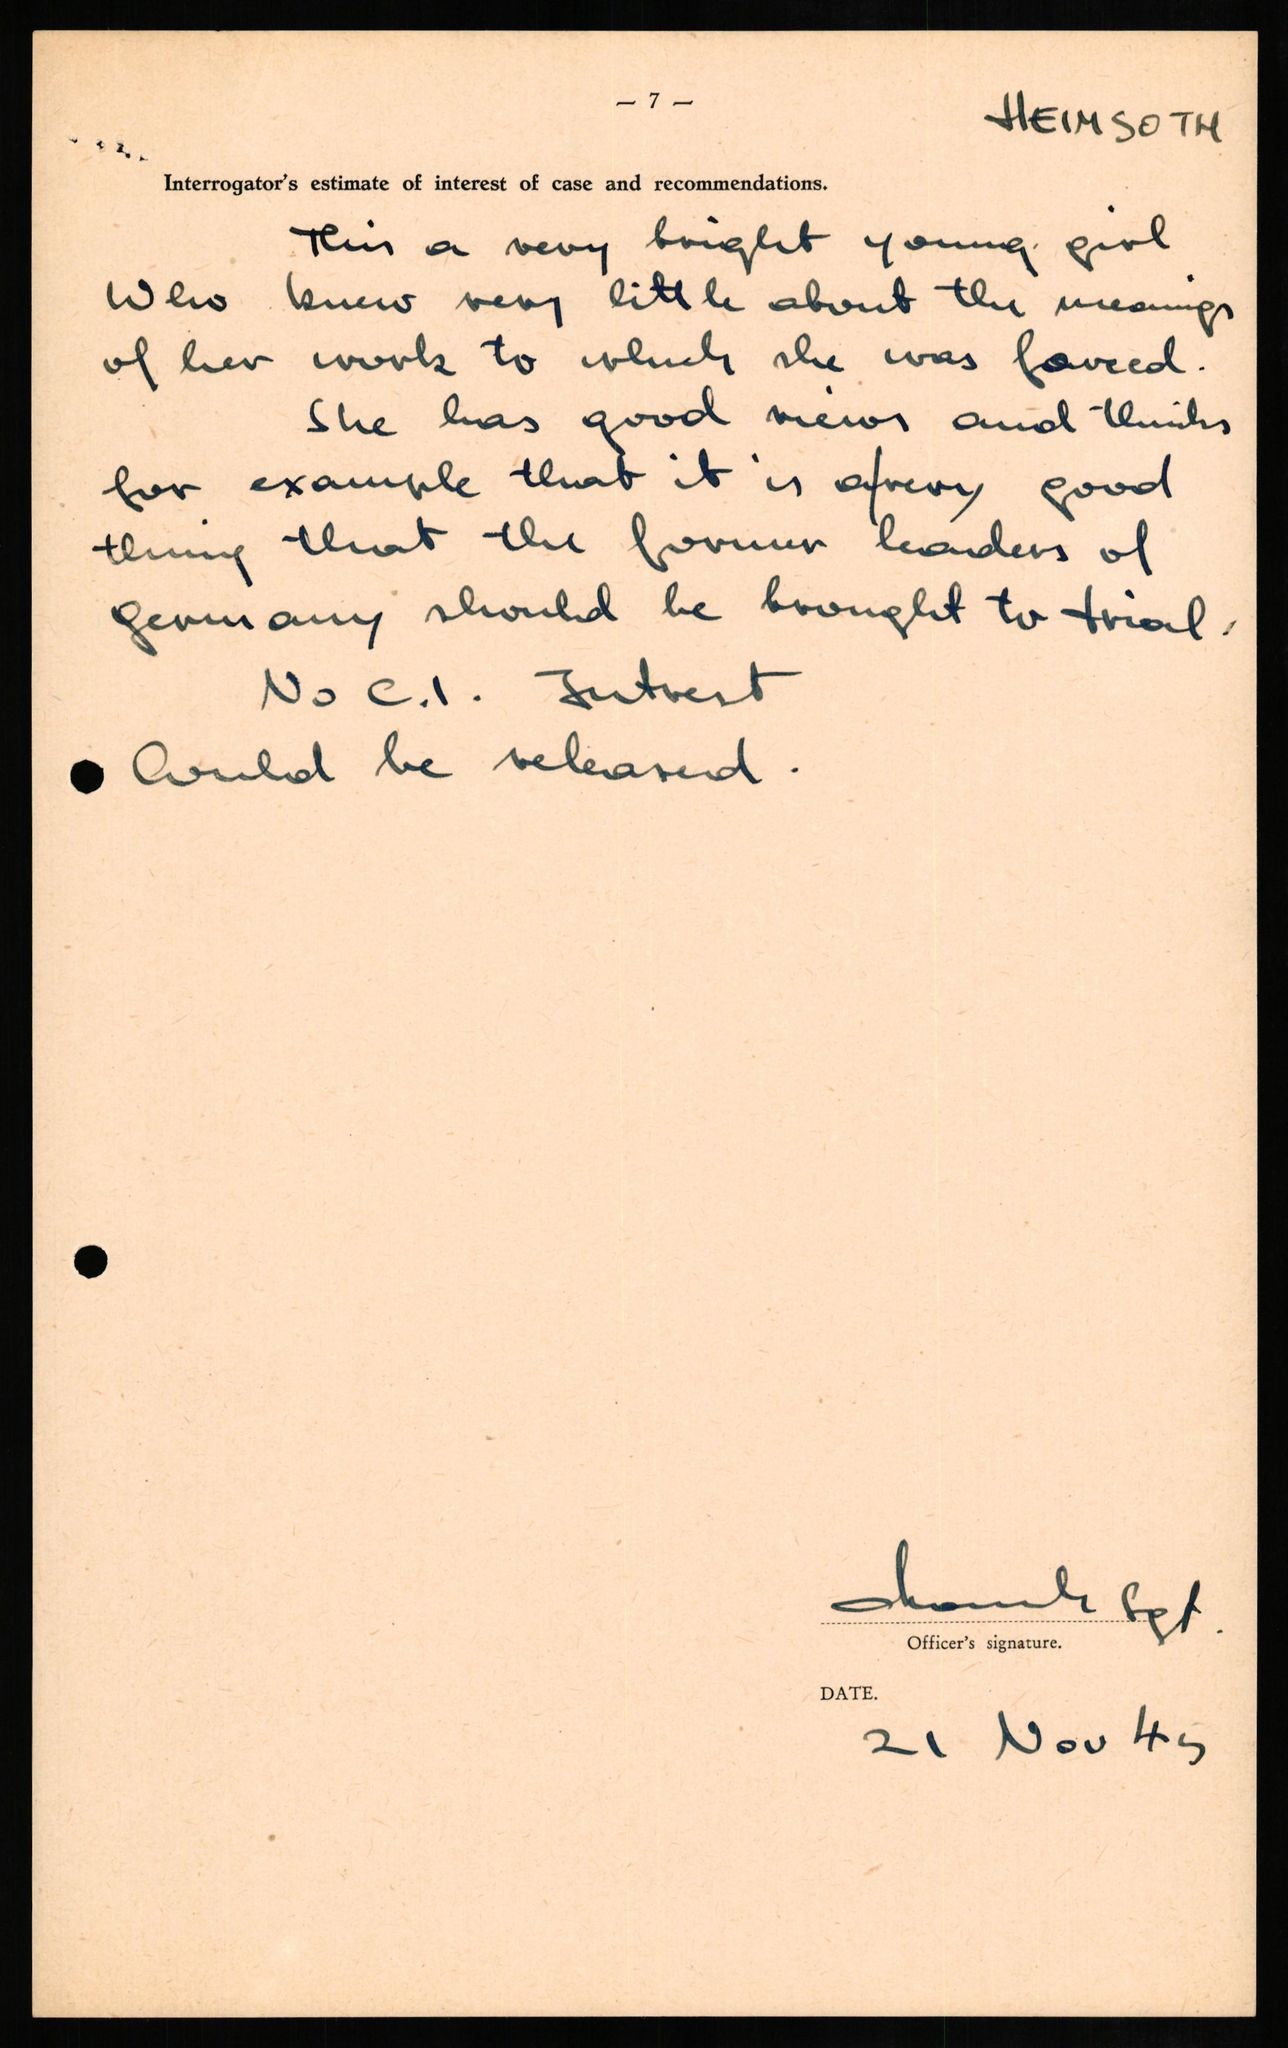 — 7 —
HEIMSOTH
Interrogator's estimate of interest of case and recommendations.
This a very bright young girl
Who knew very little about the meanings
of her work to which she was forced.
She has good views and thinks
for example that it is a/very good
thing that the former leaders of
Germany should be brought to trial.
No C.I. Intrest
Could be released.
Sgt.
Officer's signature.
DATE.
21 Nov 45